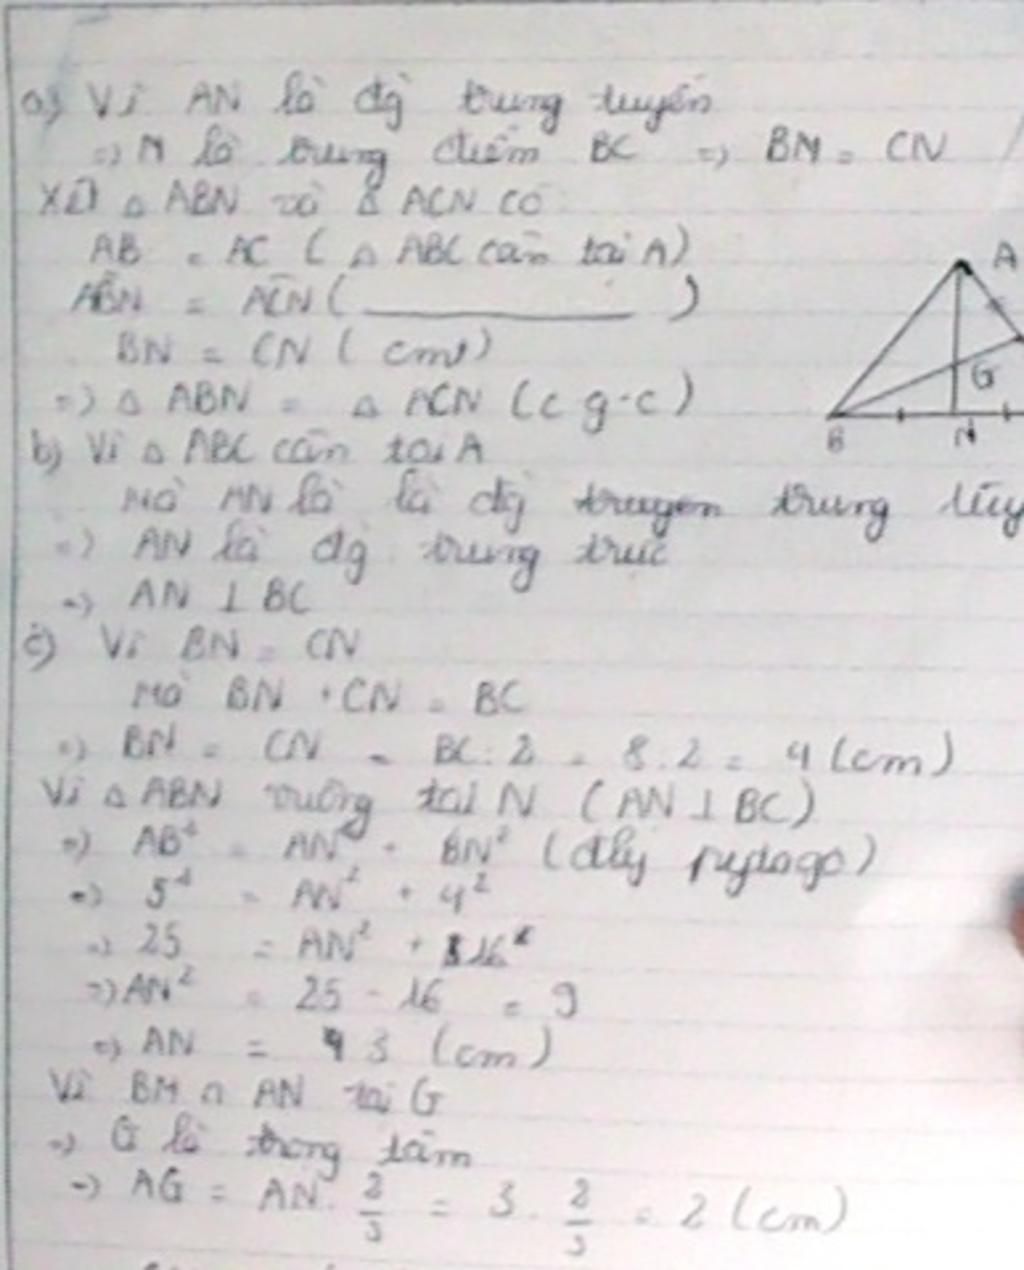 a) Vì AN là đg trung tuyến
=) N là trung điểm BC =) BN = CN
Xét △ ABN và △ ACN có
AB = AC ( △ ABC cân tại A)
ABN = ACN ( ______ )
BN = CN ( cmt)
=) △ ABN = △ ACN (c g.c)
A
G
B
N
b) Vì △ ABC cân tại A
Mà AN là là đg truyen trung tuy
=) AN là đg trung trực
=) AN ⊥ BC
c) Vì BN = CN
Mà BN + CN = BC
=) BN = CN = BC : 2 = 8 : 2 = 4 (cm)
Vì △ ABN vuông tại N (AN ⊥ BC)
=) AB² = AN² + BN² (đlý pytago)
=) 5² = AN² + 4²
=) 25 = AN² + 16
=) AN² = 25 - 16 = 9
=) AN = 3 (cm)
Vì BM ∩ AN tại G
=) G là trọng tâm
=) AG = AN . 2/3 = 3 . 2/3 = 2 (cm)